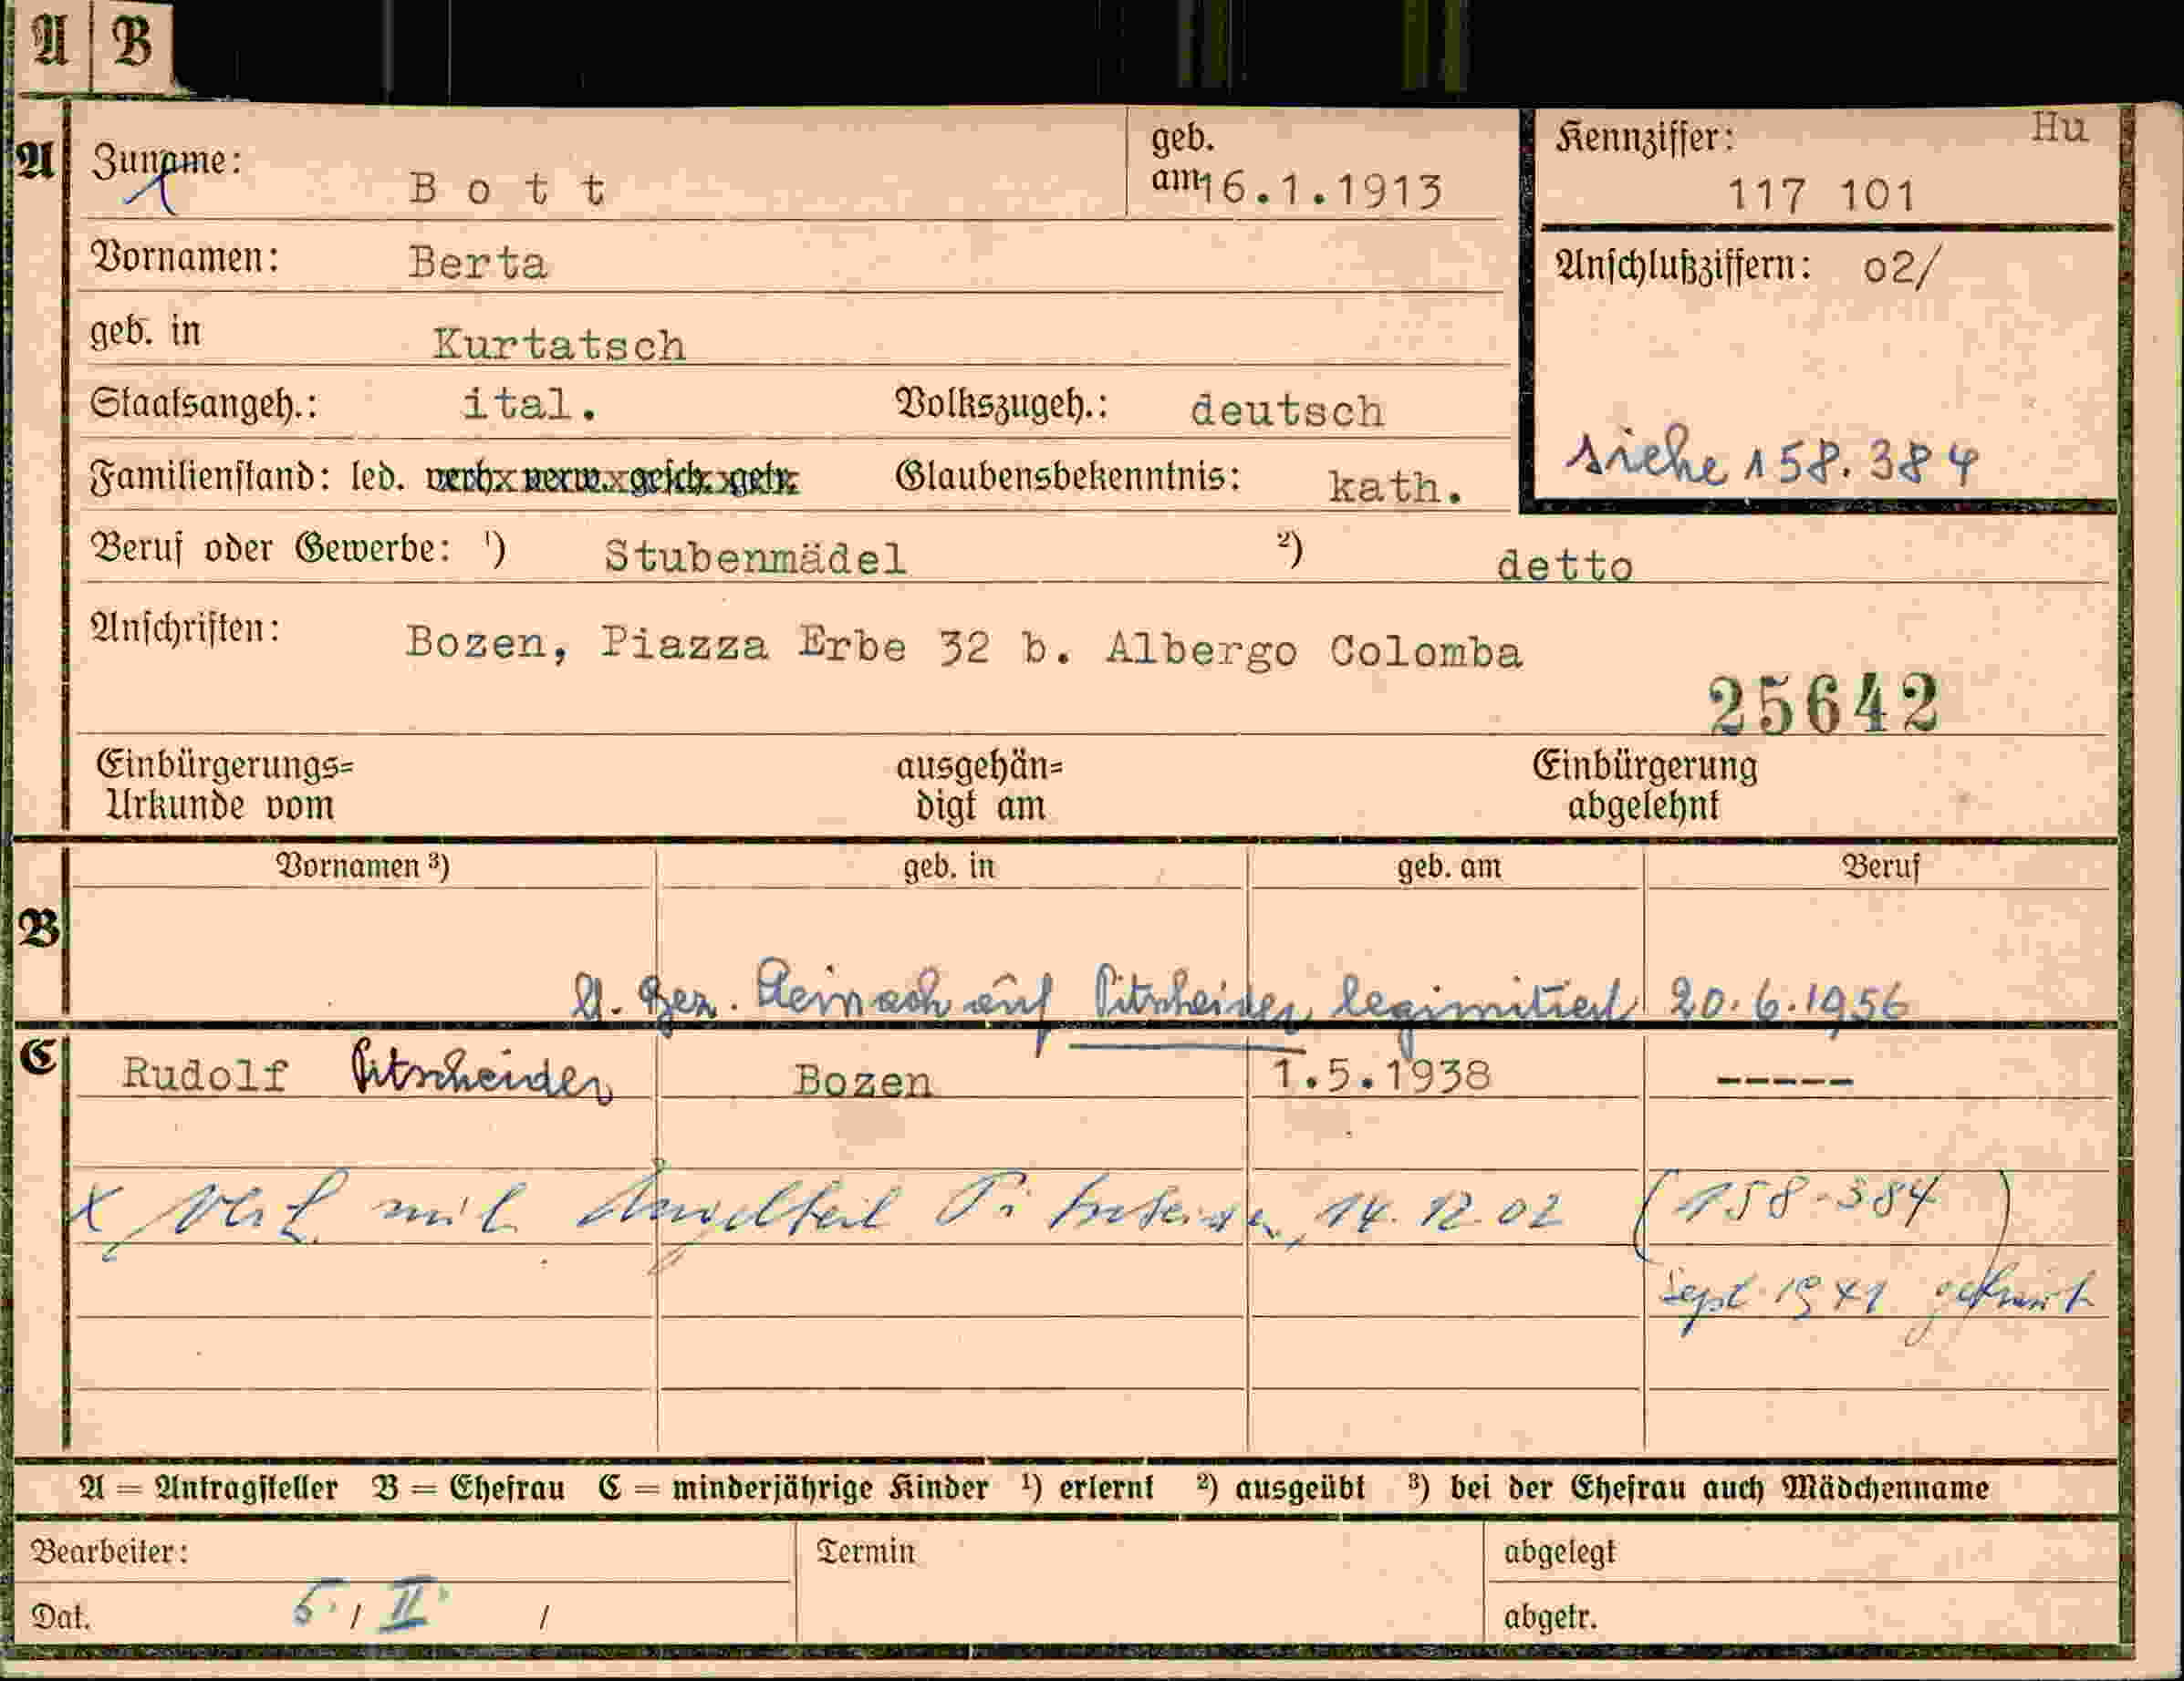 A B
A Zuname: B o t t geb. am 16.1.1913 Kennziffer: Hu
117 101
Vornamen: Berta
Anschlußziffern: o2/
geb. in Kurtatsch
Staatsangeh.: ital. Volkszugeh.: deutsch
siehe 158.384
Familienstand: led. verh. verw. gesch. getr. Glaubensbekenntnis: kath.
Beruf oder Gewerbe: ¹) Stubenmädel ²) detto
Anschriften: Bozen, Piazza Erbe 32 b. Albergo Colomba
25642
Einbürgerungs= ausgehän= Einbürgerung
Urkunde vom digt am abgelehnt
Vornamen ³) geb. in geb. am Beruf
B
auf Pitscheider legimitiert 20.6.1956
C Rudolf Pitscheider Bozen 1.5.1938 -----
x mit Pitscheider, 14.12.02 (158-384)
Sept. 1941
A = Antragsteller B = Ehefrau C = minderjährige Kinder ¹) erlernt ²) ausgeübt ³) bei der Ehefrau auch Mädchenname
Bearbeiter: Termin abgelegt
Dat. 5. / II. / abgetr.